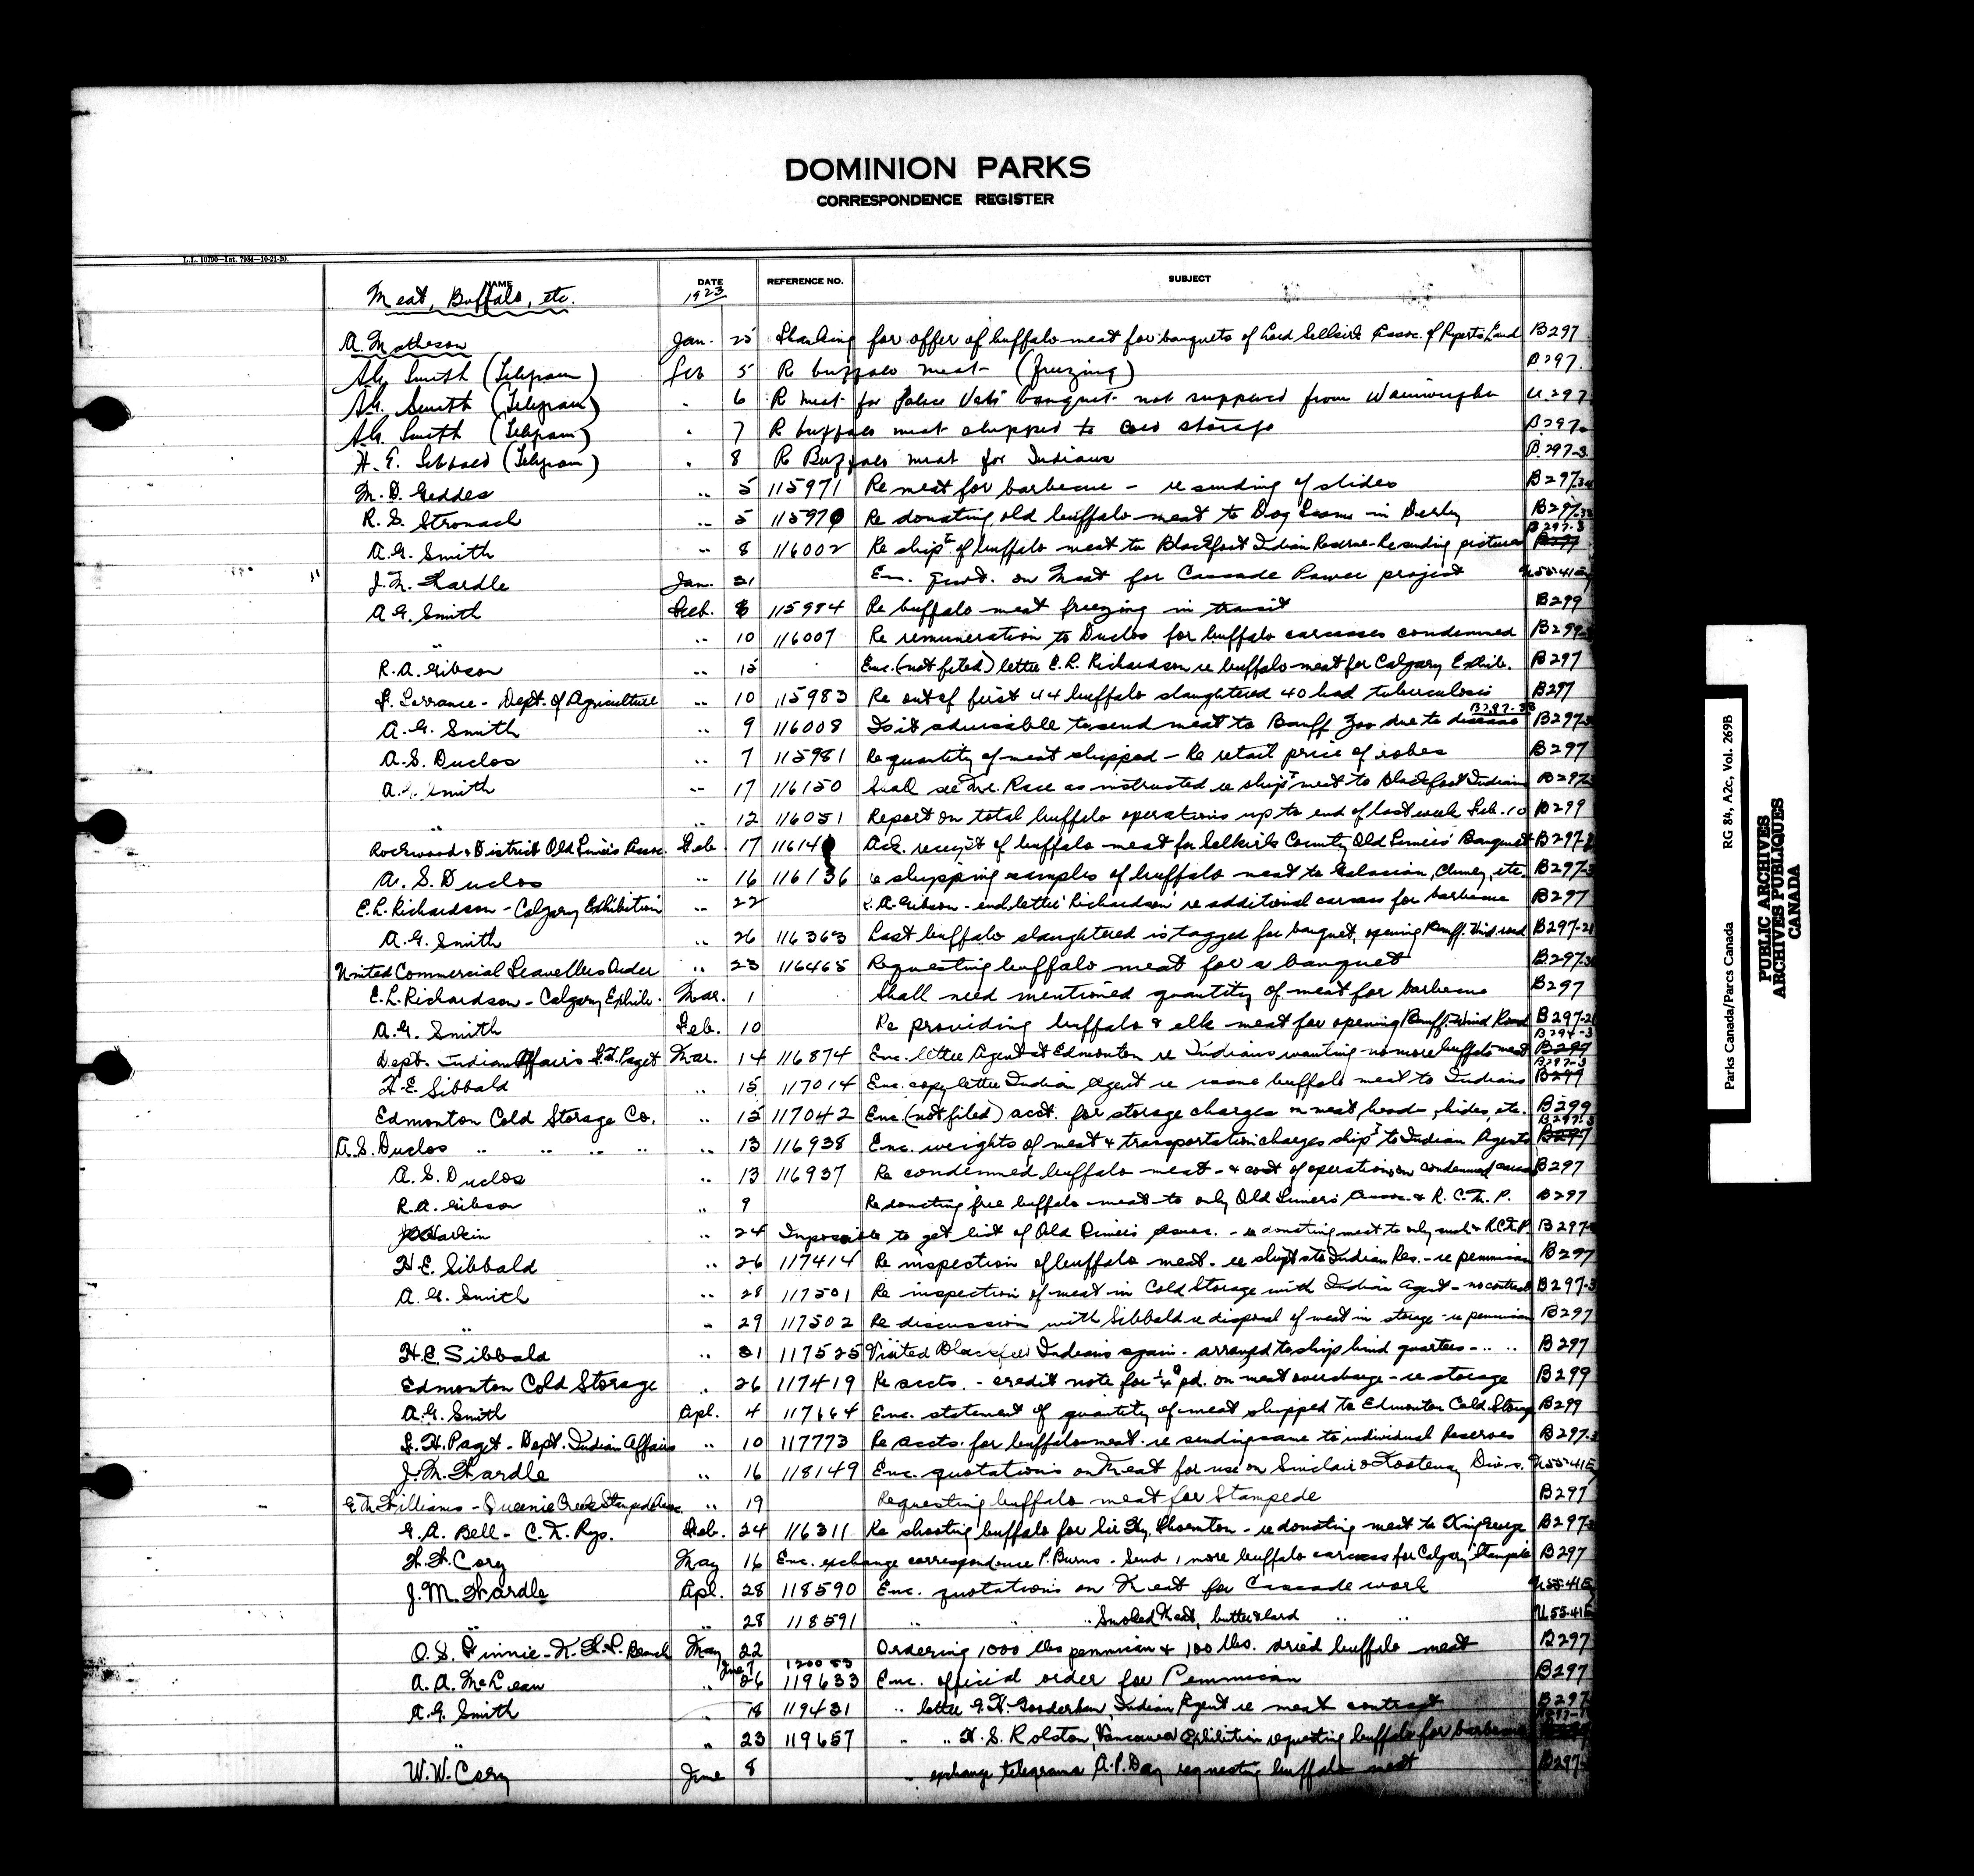 DOMINION PARKS
CORRESPONDENCE REGISTER
L.L. 10790—Int. 7984—10-21-20.
NAME DATE REFERENCE NO. SUBJECT
Meat, Buffalo, etc. 1923
A. Matheson Jan. 25 Thanking for offer of buffalo meat for banquets of Lord Selkirk Assoc. of Ruperts Land B297
A.G. Smith (Telegram) Feb 5 Re buffalo meat (freezing) B297.
A.G. Smith (Telegram) " 6 Re meat for Police Vets banquet not supplied from Wainwright U.297
A.G. Smith (Telegram) " 7 Re buffalo meat shipped to cold storage B297.
H.E. Sibbald (Telegram) " 8 Re Buffalo meat for Indians B.297-3
M. D. Geddes " 5 115971 Re meat for barbecue - re sending of slides B297-3
R. S. Stronach " 5 115970 Re donating old buffalo meat to Dog Teams in Derby B297-38
B297-3
A.G. Smith " 8 116002 Re shipt of buffalo meat to Blackfoot Indian Reserve - Re sending pictures
J. M. Wardle Jan. 31 Enc. quot. on Meat for Cascade Power project U55-41E
A G. Smith Feb. 8 115984 Re buffalo meat freezing in transit B299
" " 10 116007 Re remuneration to Duclos for buffalo carcasses condemned B299
R.A. Gibson " 15 Enc. (not filed) letter E.L. Richardson re buffalo meat for Calgary Exhib. B297
F. Torrance - Dept. of Agriculture " 10 115983 Re out of first 44 buffalo slaughtered 40 had tuberculosis B297
B297-38
A. G. Smith " 9 116008 Is it advisable to send meat to Banff Zoo due to disease B297
A.S. Duclos " 7 115981 Re quantity of meat shipped - Re retail price of robes B297
A.G. Smith " 17 116150 Shall see Mr. Race as instructed re shipt meat to Blackfoot Indians B297-3
" " 12 116051 Report on total buffalo operations up to end of last week Feb. 10 B299
Rockwood & District Old Timers Assoc. Feb 17 11614 Ack. receipt of buffalo meat for Selkirk County Old Timers' Banquet B297-3
A. S. Duclos " 16 116136 re shipping samples of buffalo meat to Galacian, Cluney, etc. B297-3
E.L. Richardson - Calgary Exhibition " 22 R.A. Gibson - encl. letter Richardson re additional carcass for barbecue B297
A.G. Smith " 26 116363 Last buffalo slaughtered is tagged for banquet, opening Banff-Wind road B297-21
United Commercial Travellers Order " 23 116465 Requesting buffalo meat for a banquet B297-3
E.L. Richardson - Calgary Exhib. Mar. 1 Shall need mentioned quantity of meat for barbecue B297
A.G. Smith Feb. 10 Re providing buffalo & elk meat for opening Banff-Wind Road B297-21
B297-3
Dept. Indian Affairs F.H. Paget Mar. 14 116874 Enc. letter Agent at Edmonton re Indians wanting no more buffalo meat B299
B297-3
H-E. Sibbald " 15 117014 Enc. copy letter Indian Agent re issue buffalo meat to Indians B299
Edmonton Cold Storage Co. " 15 117042 Enc. (not filed) acct. for storage charges on meat heads, hides, etc. B299
B297-3
A.S. Duclos " " " " " 13 116938 Enc. weights of meat & transportation charges shipt to Indian Agents B297
A.S. Duclos " 13 116937 Re condemned buffalo meat - & cost of operations on condemned carcass B297
R.A. Gibson " 9 Re donating free buffalo meat to only Old Timers Assoc. & R.C.M.P. B297
JB Harkin " 24 Impossible to get list of Old Timers Assoc. - re donating meat to only such & R.C.M.P. B297
H.E. Sibbald " 26 117414 Re inspection of buffalo meat - re shipt to Indian Res. - re pemmican B297
A. G. Smith " 28 117501 Re inspection of meat in Cold Storage with Indian Agent - no contract B297-3
" " 29 117502 Re discussion with Sibbald re disposal of meat in storage - re pemmican B297
H.E. Sibbald " 31 117525 Visited Blackfeet Indians again - arranged to ship hind quarters - " " B297
Edmonton Cold Storage " 26 117419 Re accts. - credit note for ¼¢ pd. on meat overcharge - re storage B299
A.G. Smith Apl. 4 117664 Enc. statement of quantity of meat shipped to Edmonton Cold Storage B299
F. H. Paget - Dept. Indian Affairs " 10 117773 Re accts. for buffalo meat - re sending same to individual Reserves B297-3
J. M. Wardle " 16 118149 Enc. quotations on Meat for use on Sinclair & Kootenay Divs. U55-41E
Williams - Stampede Assoc. " 19 Requesting buffalo meat for Stampede B297
G. A. Bell - C. N. Rys. Feb. 24 116311 Re shooting buffalo for Sir Hy. Thornton - re donating meat to King George B297-3
W. W. Cory May 16 Enc. exchange correspondence P. Burns - Send 1 more buffalo carcass for Calgary Stampede B297
J. M. Wardle Apl. 28 118590 Enc. quotations on Meat for Cascade work U55-41E
" 28 118591 " " " Smoked Meat, butter & lard " " U55-41E
O. S. Finnie - N.W.T. Branch May 22 Ordering 1000 lbs pemmican & 100 lbs. dried buffalo meat B297
June 7 120053
A. A. McLean " 26 119633 Enc. official order for Pemmican B297
A.G. Smith " 18 119431 " letter G.H. Gooderham, Indian Agent re meat contract B297
" " 23 119657 " " H. S. Rolston, Vancouver Exhibition requesting buffalo for barbecue
W.W. Cory June 8 " exchange telegrams A.P. Day requesting buffalo meat B297
Parks Canada/Parcs Canada RG 84, A2c, Vol. 269B
PUBLIC ARCHIVES
ARCHIVES PUBLIQUES
CANADA